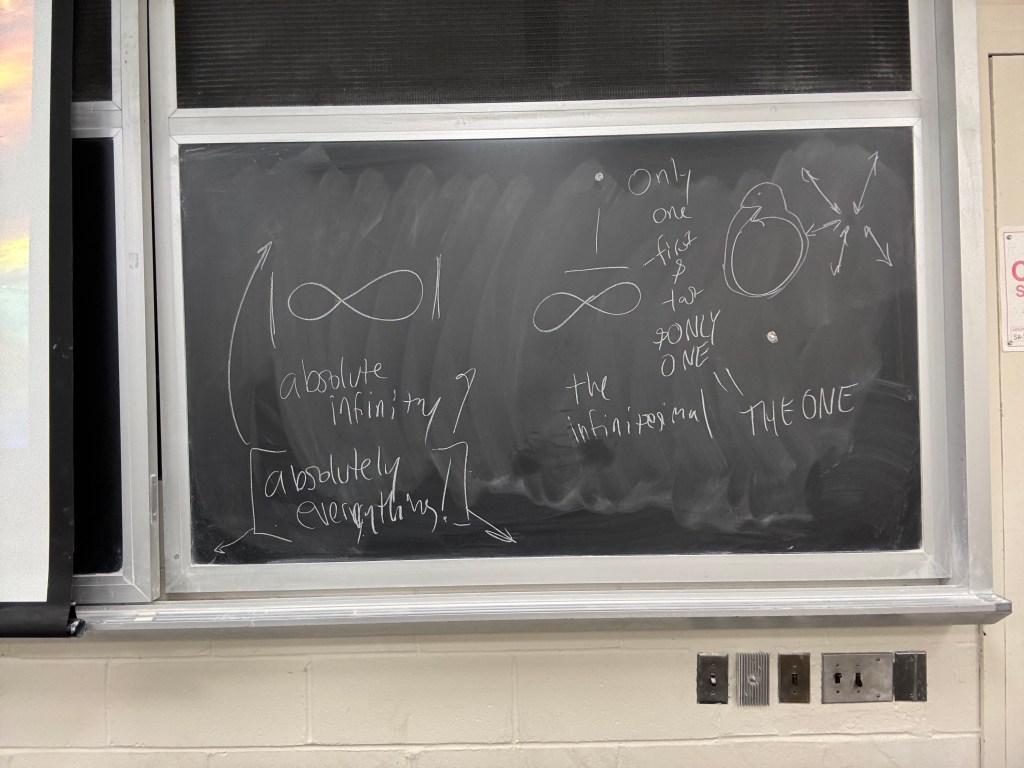 |∞|
absolute
infinity
absolutely
everything!
1
∞
the
infinitesimal
Only
one
first
&
&ONLY
ONE
THE ONE